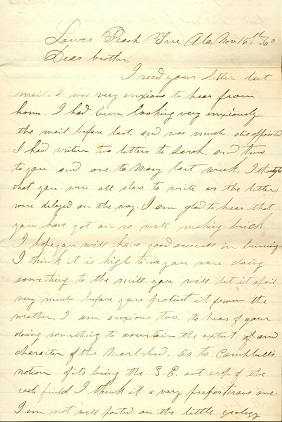 Lower Peach Tree Ala Nov 16th 60
Dear brother
I recd your letter last
mail. I was very anxious to hear from
home. I had been looking very anxiously
the mail before last and was much disappointed
I had writen two letters to Sarah and two
to you and one to Mary last week. I thought
that you were all slow to write or the letter
were delayed on the way. I am glad to hear that
you have got on so well making brick
I hope you will have good success in burning
I think it is high time you were doing
something to the mill you will let it spoil
very much before you protect it from the
weather. I am anxious too, to hear of your
doing something to ascertain the extent of and
character of the Marl bed. As to Campbells
notion of its being the S.E. out crop of the
coal field I think it a very preposterous one.
I am not well posted on the little geology